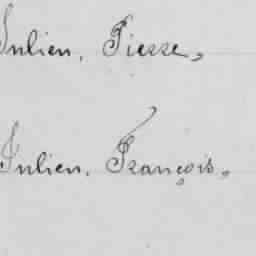 Julien, Pierre,
Julien, François,